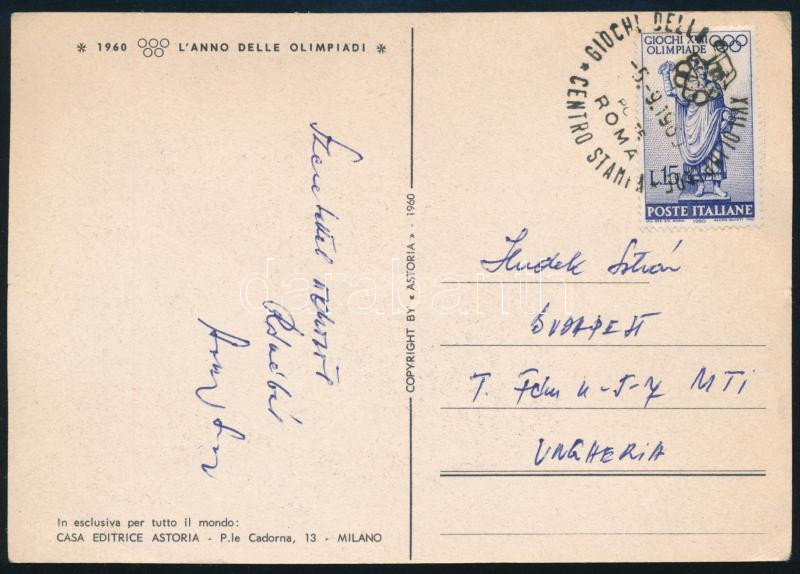 * 1960 L'ANNO DELLE OLIMPIADI *
Szeretettel
Rómából
COPYRIGHT BY « ASTORIA » - 1960
In esclusiva per tutto il mondo:
CASA EDITRICE ASTORIA - P.le Cadorna, 13 - MILANO
* GIOCHI DELLA XVII OLIMPIADE
CENTRO STAMPA
-5.-9.1960
ROMA
GIOCHI XVII
OLIMPIADE
L.15
POSTE ITALIANE
1960
István
BUDAPEST
MTI
UNGHERIA
darabanth